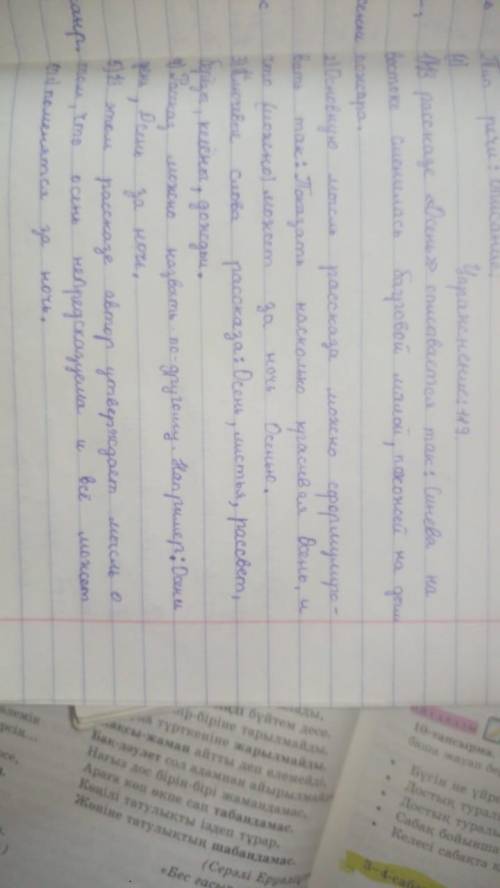 Тип речи:
Упражнение: 119
1) В рассказе «Осень» описовается так: Синева на
востоке сменилась багровой мглой, похожей на дым
пожара.
2) Основную мысль рассказа можно сформулиро-
вать так: Показать насколько красивая Осень, и
что (можно) может за ночь Осенью.
3) Ключевые слова рассказа: Осень, листья, рассвет,
буйца, клёны, дожди.
4) Рассказ можно назвать по-другому. Например:
Осень за ночь.
5) В этом рассказе автор утверждает мысль о
том, что осень непредсказуема и всё может
поменятся за ночь.
бүйтем десе.
бір-біріне тарылмайды,
түрткеніне жарылмайды.
жақсы-жаман айтты деп елемейді,
Бақ-дәулет сол адамнан айырылмайды
Нағыз дос бірін-бірі жамандамас,
Араға көп өкпе сап табандамас.
Көңілі татулықты іздеп тұрар,
Жөніне татулықтың шабандамас.
(Серәлі
«Бес ғасыр
10-тапсырма.
баша жауап
• Бүгін не үйр
• Достық турал
• Достық турал
• Сабақ бойынша
• Келесі сабақта
3–4-саб